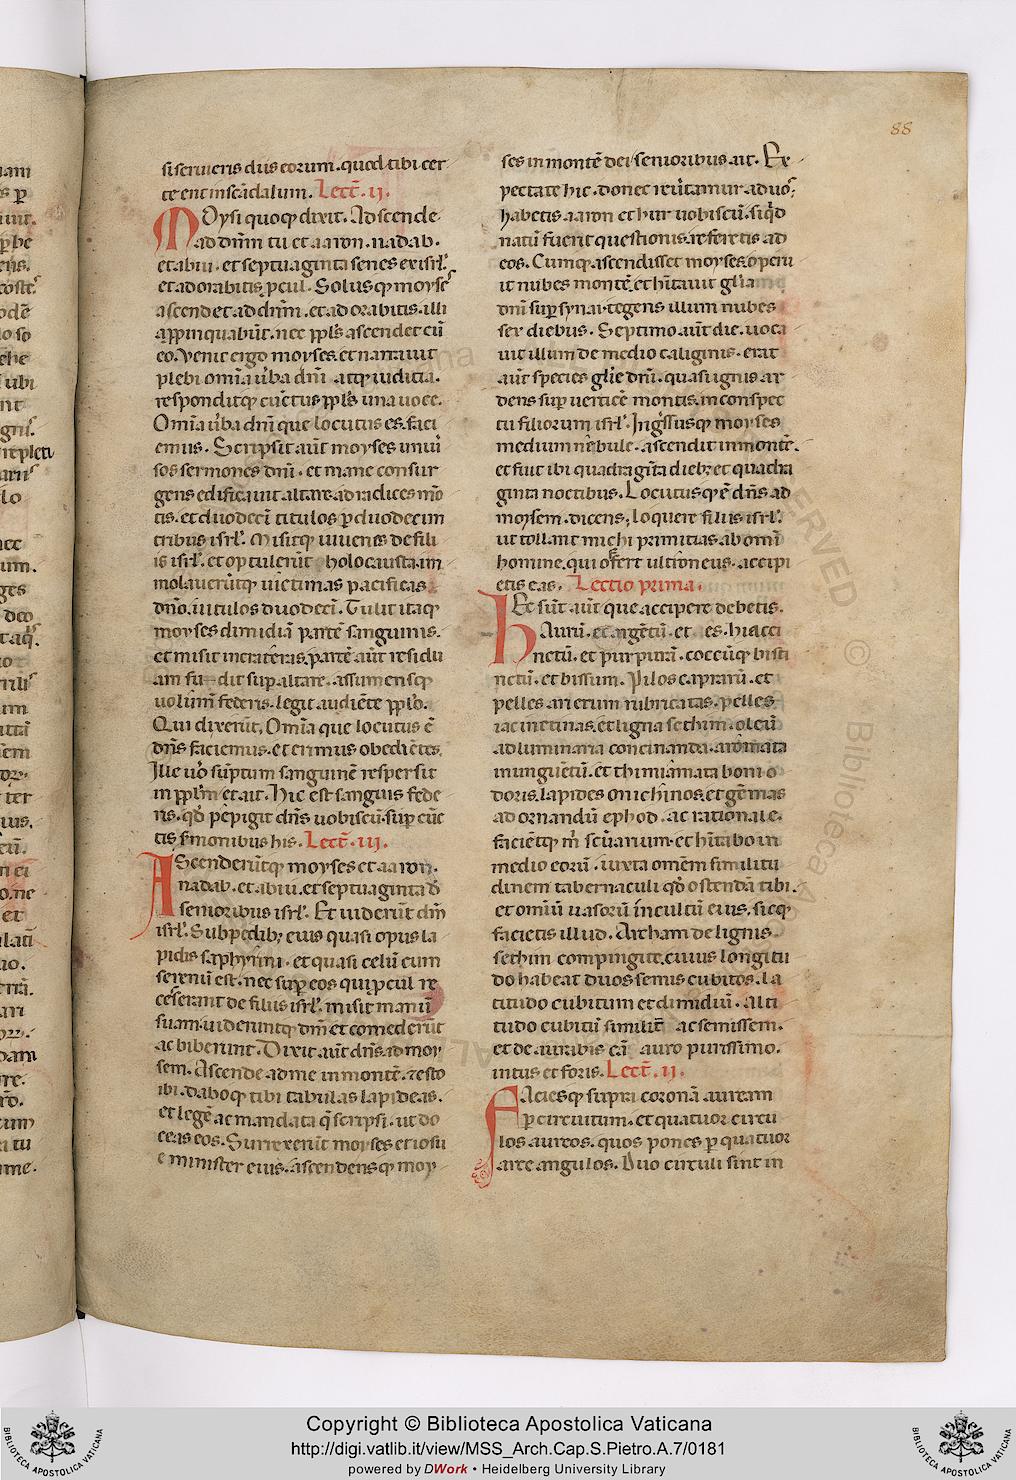 88
si seruieris diis eorum. quod tibi cer
te erit in scandalum. Lect̄. ij.
Moysi quoq; dixit. Ascende
ad dn̄m tu et aaron. nadab.
et abiu. et septuaginta senes ex isrl̄.
et adorabitis p̱cul. Solusq; moyses
ascendet ad dn̄m. et adorabitis. illi
appinquabūt. nec ppl̄s ascendet cū
eo. Venit ergo moyses. et narrauit
plebi om̄ia ūba dn̄i atq; iudicia.
responditq; cūctus ppl̄s una uoce.
Om̄ia ūba dn̄i que locutus es. faci
emus. Scripsit aūt moyses uniū
sos sermones dn̄i. et mane consur
gens edificauit altare. ad radices mō
tis. et duodecī titulos p̱ duodecim
tribus isrl̄. Misitq; iuuenes de fili
is isrl̄. et optulerūt holocausta. im
molauerūtq; uictimas pacificas
dn̄o. uitulos duodecī. Tulit itaq;
moyses dimidiā partē sanguinis.
et misit in crateras. partē aūt residu
am fudit sup̱ altare. assumensq;
uolūm̄ federis. legit audiēte ppl̄o.
Qui dixerūt. Om̄ia que locutus ē
dn̄s faciemus. et erimus obediētes.
Ille ūo sūptum sanguinē respersit
in ppl̄m et ait. Hic est sanguis fede
ris. qd̄ pepigit dn̄s uobiscū. sup̱ cūc
tis s̄monibus his. Lect̄. iii.
Ascenderūtq; moyses et aaron.
nadab. et abiu. et septuaginta d̄
senioribus isrl̄. Et uiderūt dm̄
isrl̄. Sub pedib; eius quasi opus la
pidis saphyrini. et quasi celū cum
serenū est. nec sup̱ eos qui p̱cul re
cesserant de filiis isrl̄. misit manū
suam. uideruntq; dm̄ et comederūt
ac biberunt. Dixit aūt dn̄s ad moy
sem. Ascende ad me in montē. ⁊ esto
ibi. daboq; tibi tabulas lapideas.
et legē ac mandata q̄ scripsi. ut do
ceas eos. Surrexerūt moyses et iosu
e minister eius. ascendensq; moy
ses in montē dei senioribus ait. Ex
pectate hic. donec reūtamur ad uos;
habetis aaron et hur uobiscū. siqd̄
natū fuerit questionis. refer̄tis ad
eos. Cumq; ascendisset moyses. operu
it nubes montē. et hītauit gl̄ia
dn̄i sup̱ synai. tegens illum nubes
sex diebus. Septimo aūt die. uoca
uit illum de medio caliginis. erat
aūt species gl̄ie dn̄i. quasi ignis ar
dens sup̱ uerticē montis. in conspec
tu filiorum isrl̄. Ingr̄ssusq; moyses
medium nebule. ascendit in montē.
et fuit ibi quadragīta dieb; et quadra
ginta noctibus. Locutusq; ē dn̄s ad
moysem. dicens; loquere filiis isrl̄.
ut tollant michi primitias. ab omi
homine. qui off̄ert ultroneus. accipi
etis eas. Lectio prima.
Hec sūt aūt que accipere debetis.
Aurū. et argētū. et es. hiacci
nctū. et purpurā. coccūq; bisti
nctū. et bissum. Pilos caprarū. et
pelles arietum rubricatas. pelles
iacinctinas. et ligna sethim. oleū
ad luminaria concinanda. aromata
in unguētū. et thimiamata boni o
doris. lapides onichinos. et gēmas
ad ornandū ephod. ac rationale.
facietq; m̄ scūarium. et hītabo in
medio eorū. iuxta omēm similitu
dinem tabernaculi qd̄ ostendā tibi.
et omiū uasorū in cultū eius. sicq;
facietis illud. Archam de lignis
sethim compingite. cuius longitu
do habeat duos semis cubitos. la
titudo cubitum et dimidiū. alti
tudo cubitū similit̄ ac semissem.
et deaurabis eā auro purissimo.
intus et foris. Lect̄. ij.
Faciesq; supra coronā auream
p̱ circuitum. et quatuor circu
los aureos. quos pones p̱ quatuor
arce angulos. Duo circuli sint in
Copyright © Biblioteca Apostolica Vaticana
http://digi.vatlib.it/view/MSS_Arch.Cap.S.Pietro.A.7/0181
powered by DWork • Heidelberg University Library
BIBLIOTECA APOSTOLICA VATICANA
BIBLIOTECA APOSTOLICA VATICANA